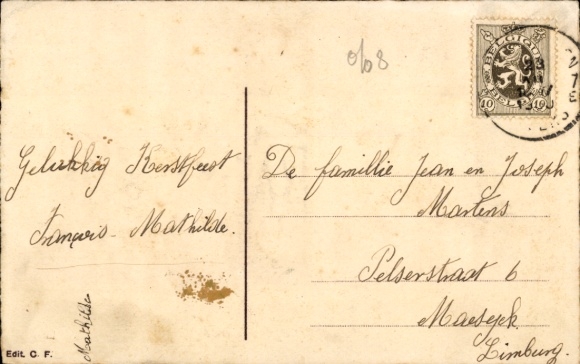 o/o8
BELGIQUE
BELGIË
10 10
Gelukkig Kerstfeest
François - Mathilde.
Mathilde
De famillie Jean en Joseph
Martens
Pelserstraat 6
Maeseyck.
Limburg.
Edit. C. F.